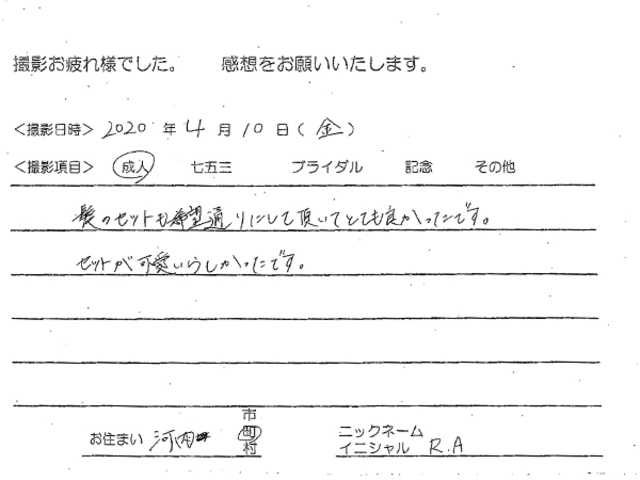 撮影お疲れ様でした。 感想をお願いいたします。
<撮影日時> 2020 年 4 月 10 日 (金)
<撮影項目> 成人 七五三 ブライダル 記念 その他
髪のセットも希望通りにして頂いてとても良かったです。
セットが可愛いらしかったです。
お住まい 河内 市 町 村
ニックネーム
イニシャル R.A